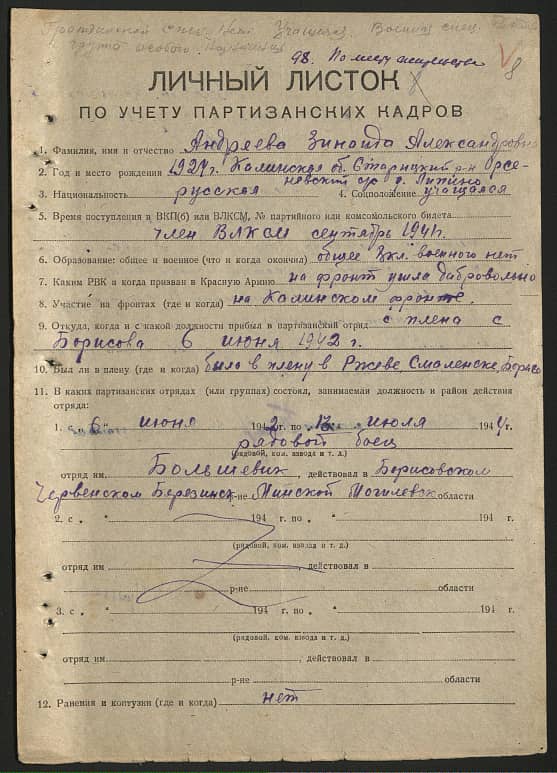 Гражданской спец. Нет Учащаяся. Военная спец.
группа особого назначения
98. По месту жительства
8
ЛИЧНЫЙ ЛИСТОК
ПО УЧЕТУ ПАРТИЗАНСКИХ КАДРОВ
1. Фамилия, имя и отчество Андреева Зинаида Александровна
2. Год и место рождения 1924г. Калинская об. Старицкий р-н Арсе-
невский с/с д.
3. Национальность русская 4. Соцположение учащаяся
5. Время поступления в ВКП(б) или ВЛКСМ, № партийного или комсомольского билета
член ВЛКСМ сентябрь 1941г.
6. Образование: общее и военное (что и когда окончил) общее 8кл. военного нет
7. Каким РВК и когда призван в Красную Армию на фронт ушла дабровольно
8. Участие на фронтах (где и когда) на Калинском фронте.
9. Откуда, когда и с какой должности прибыл в партизанский отряд с плена с
Борисова 6 июня 1942 г.
10. Был ли в плену (где и когда) была в плену в Ржеве, Смаленске, Борисо
11. В каких партизанских отрядах (или группах) состоял, занимаемая должность и район действия
отряда:
1. с „6" июня 1942 г. по 13 июля 1944 г.
рядовой боец
(рядовой, ком. взвода и т. д.)
отряд им. Большевик, действовал в Борисовском
Червенском Березинск р-не Минской Могилевск области
2. с " 194 г. по " 194 г.
(рядовой, ком. взвода и т. д.)
отряд им. , действовал в
р-не области
3. с " 194 г. по " 194 г.
(рядовой, ком. взвода и т. д.)
отряд им. , действовал в
р-не области
12. Ранения и контузии (где и когда) нет